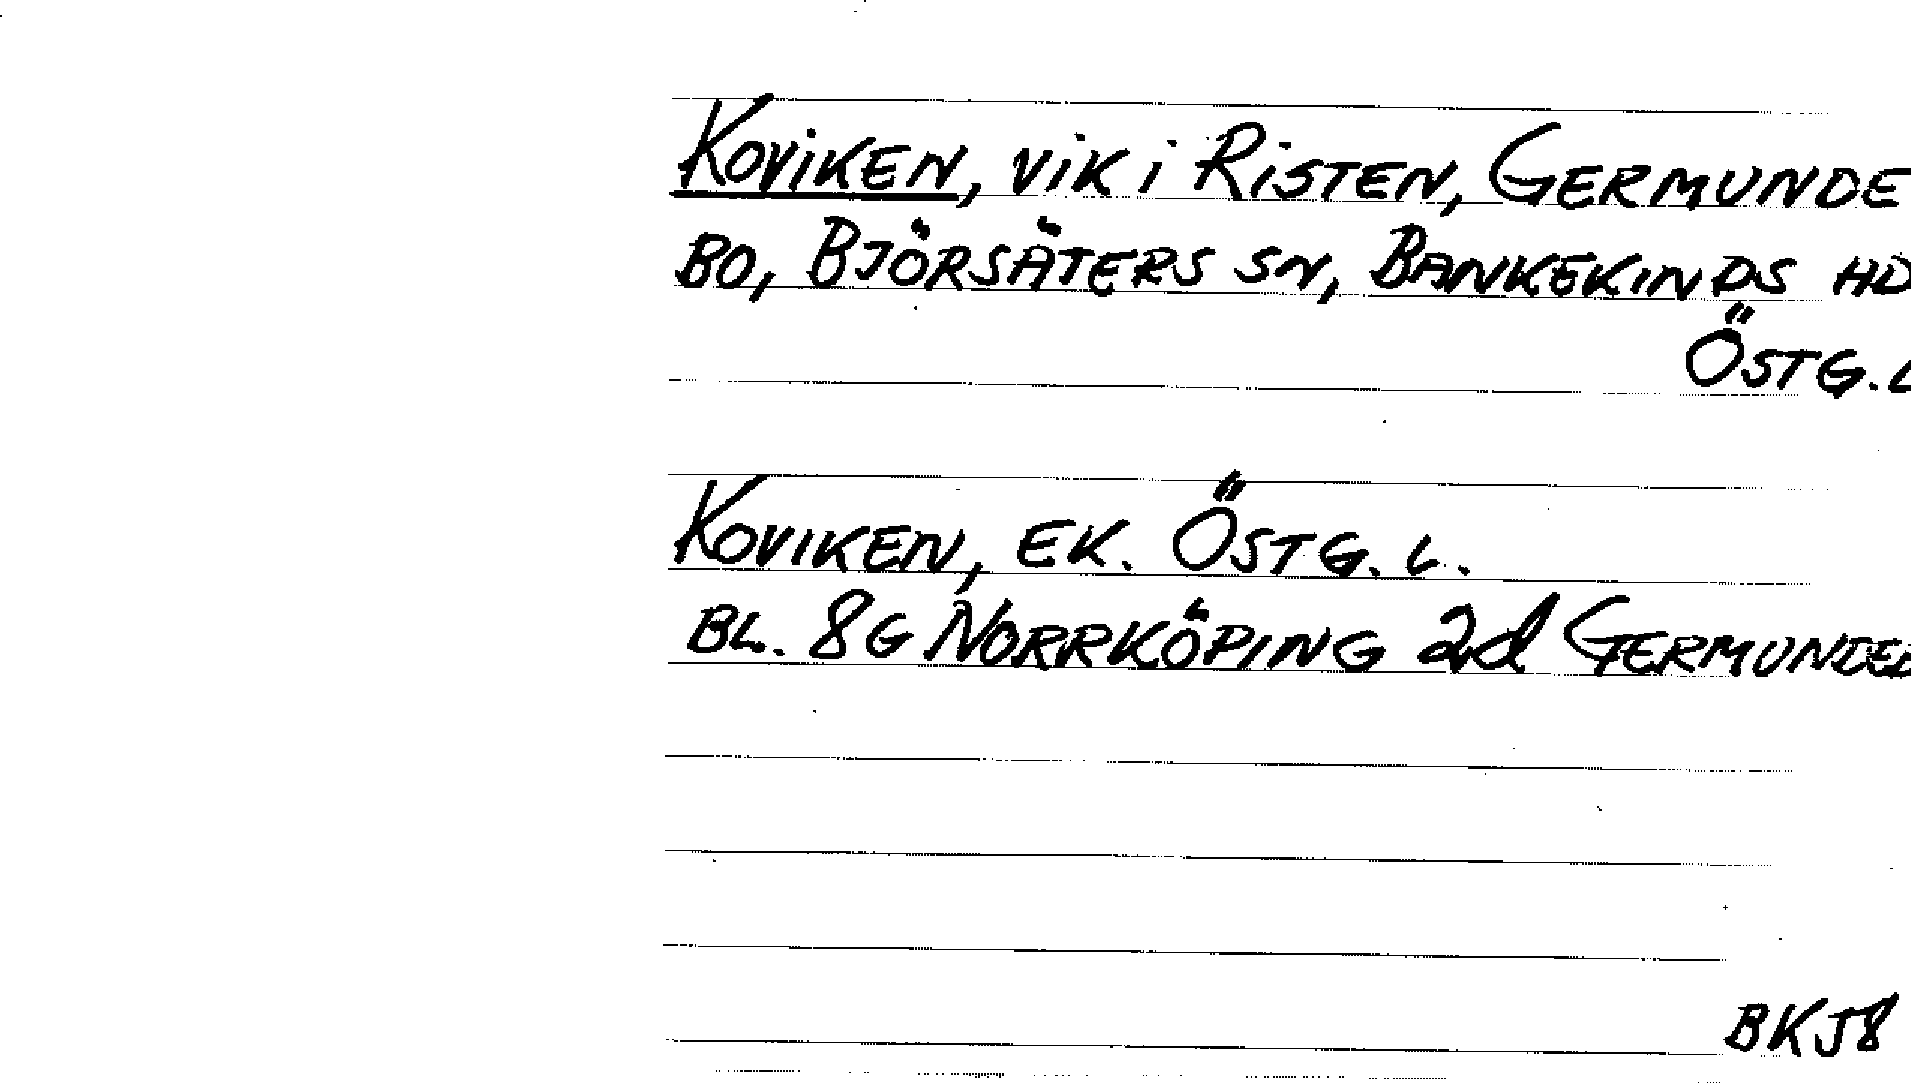 KOVIKEN, VIK I RISTEN, GERMUNDE
BO, BJÖRSÄTERS SN, BANKEKINDS HD
ÖSTG. L
KOVIKEN, EK. ÖSTG. L.
BL. 8G NORRKÖPING 2d GERMUNDEB
BKJ8